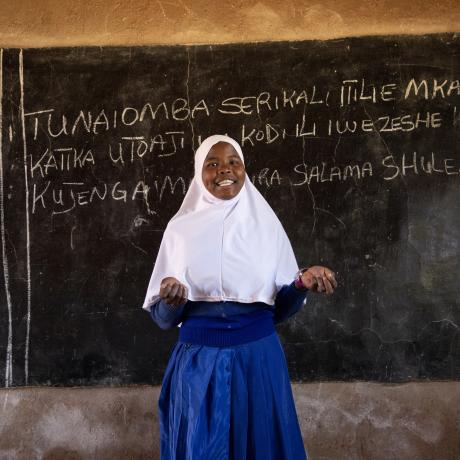 TUNAIOMBA SERIKALI ITILIE MKA
KATIKA UTOAJI KODI ILI IWEZESHE
KUJENGA SALAMA SHULE